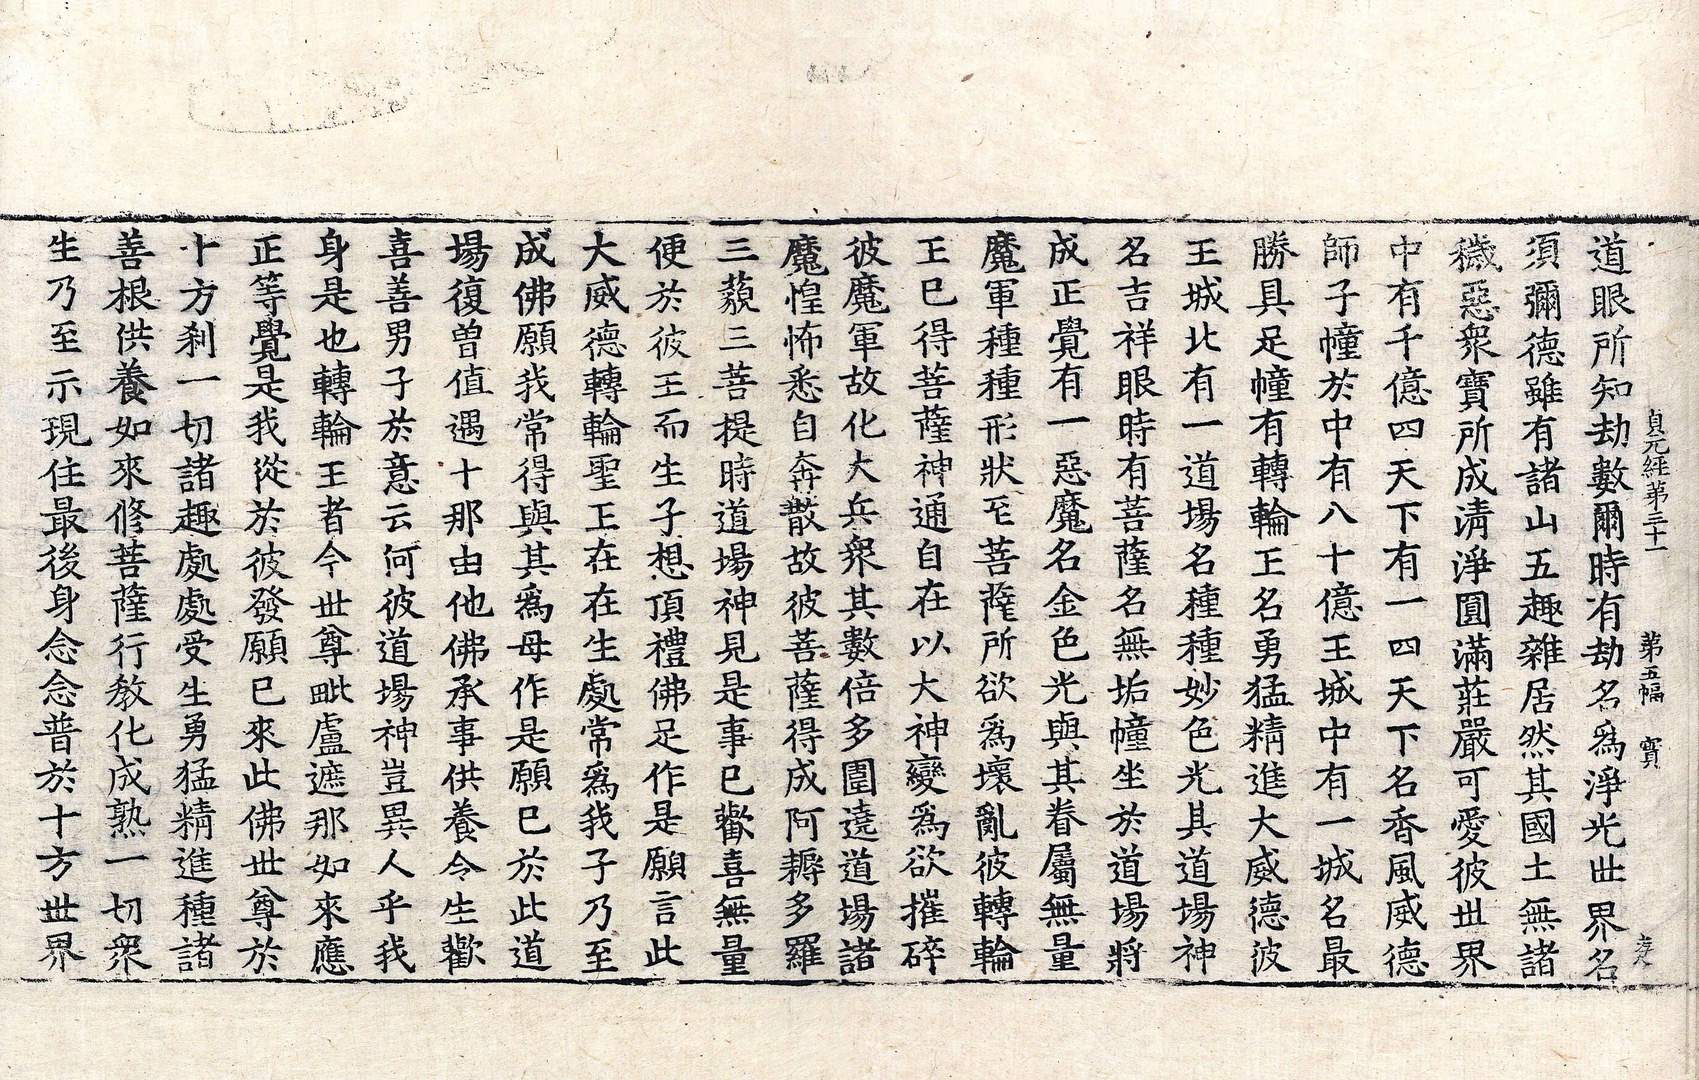 貞元經第三十一 第五幅 寳
道眼所知劫數爾時有劫名爲淨光世界名
須彌德雖有諸山五趣雜居然其國土無諸
穢惡衆寶所成清淨圓滿莊嚴可愛彼世界
中有千億四天下有一四天下名香風威德
師子幢於中有八十億王城中有一城名最
勝具足幢有轉輪王名勇猛精進大威德彼
王城北有一道場名種種妙色光其道場神
名吉祥眼時有菩薩名無垢幢坐於道場將
成正覺有一惡魔名金色光與其眷屬無量
魔軍種種形狀至菩薩所欲爲壞亂彼轉輪
王已得菩薩神通自在以大神變爲欲摧碎
彼魔軍故化大兵衆其數倍多圍遶道場諸
魔惶怖悉自奔散故彼菩薩得成阿耨多羅
三藐三菩提時道場神見是事已歡喜無量
便於彼王而生子想頂禮佛足作是願言此
大威德轉輪聖王在在生處常爲我子乃至
成佛願我常得與其爲母作是願已於此道
場復曾值遇十那由他佛承事供養令生歡
喜善男子於意云何彼道場神豈異人乎我
身是也轉輪王者今世尊毗盧遮那如來應
正等覺是我從於彼發願已來此佛世尊於
十方剎一切諸趣處處受生勇猛精進種諸
善根供養如來修菩薩行教化成熟一切衆
生乃至示現住最後身念念普於十方世界